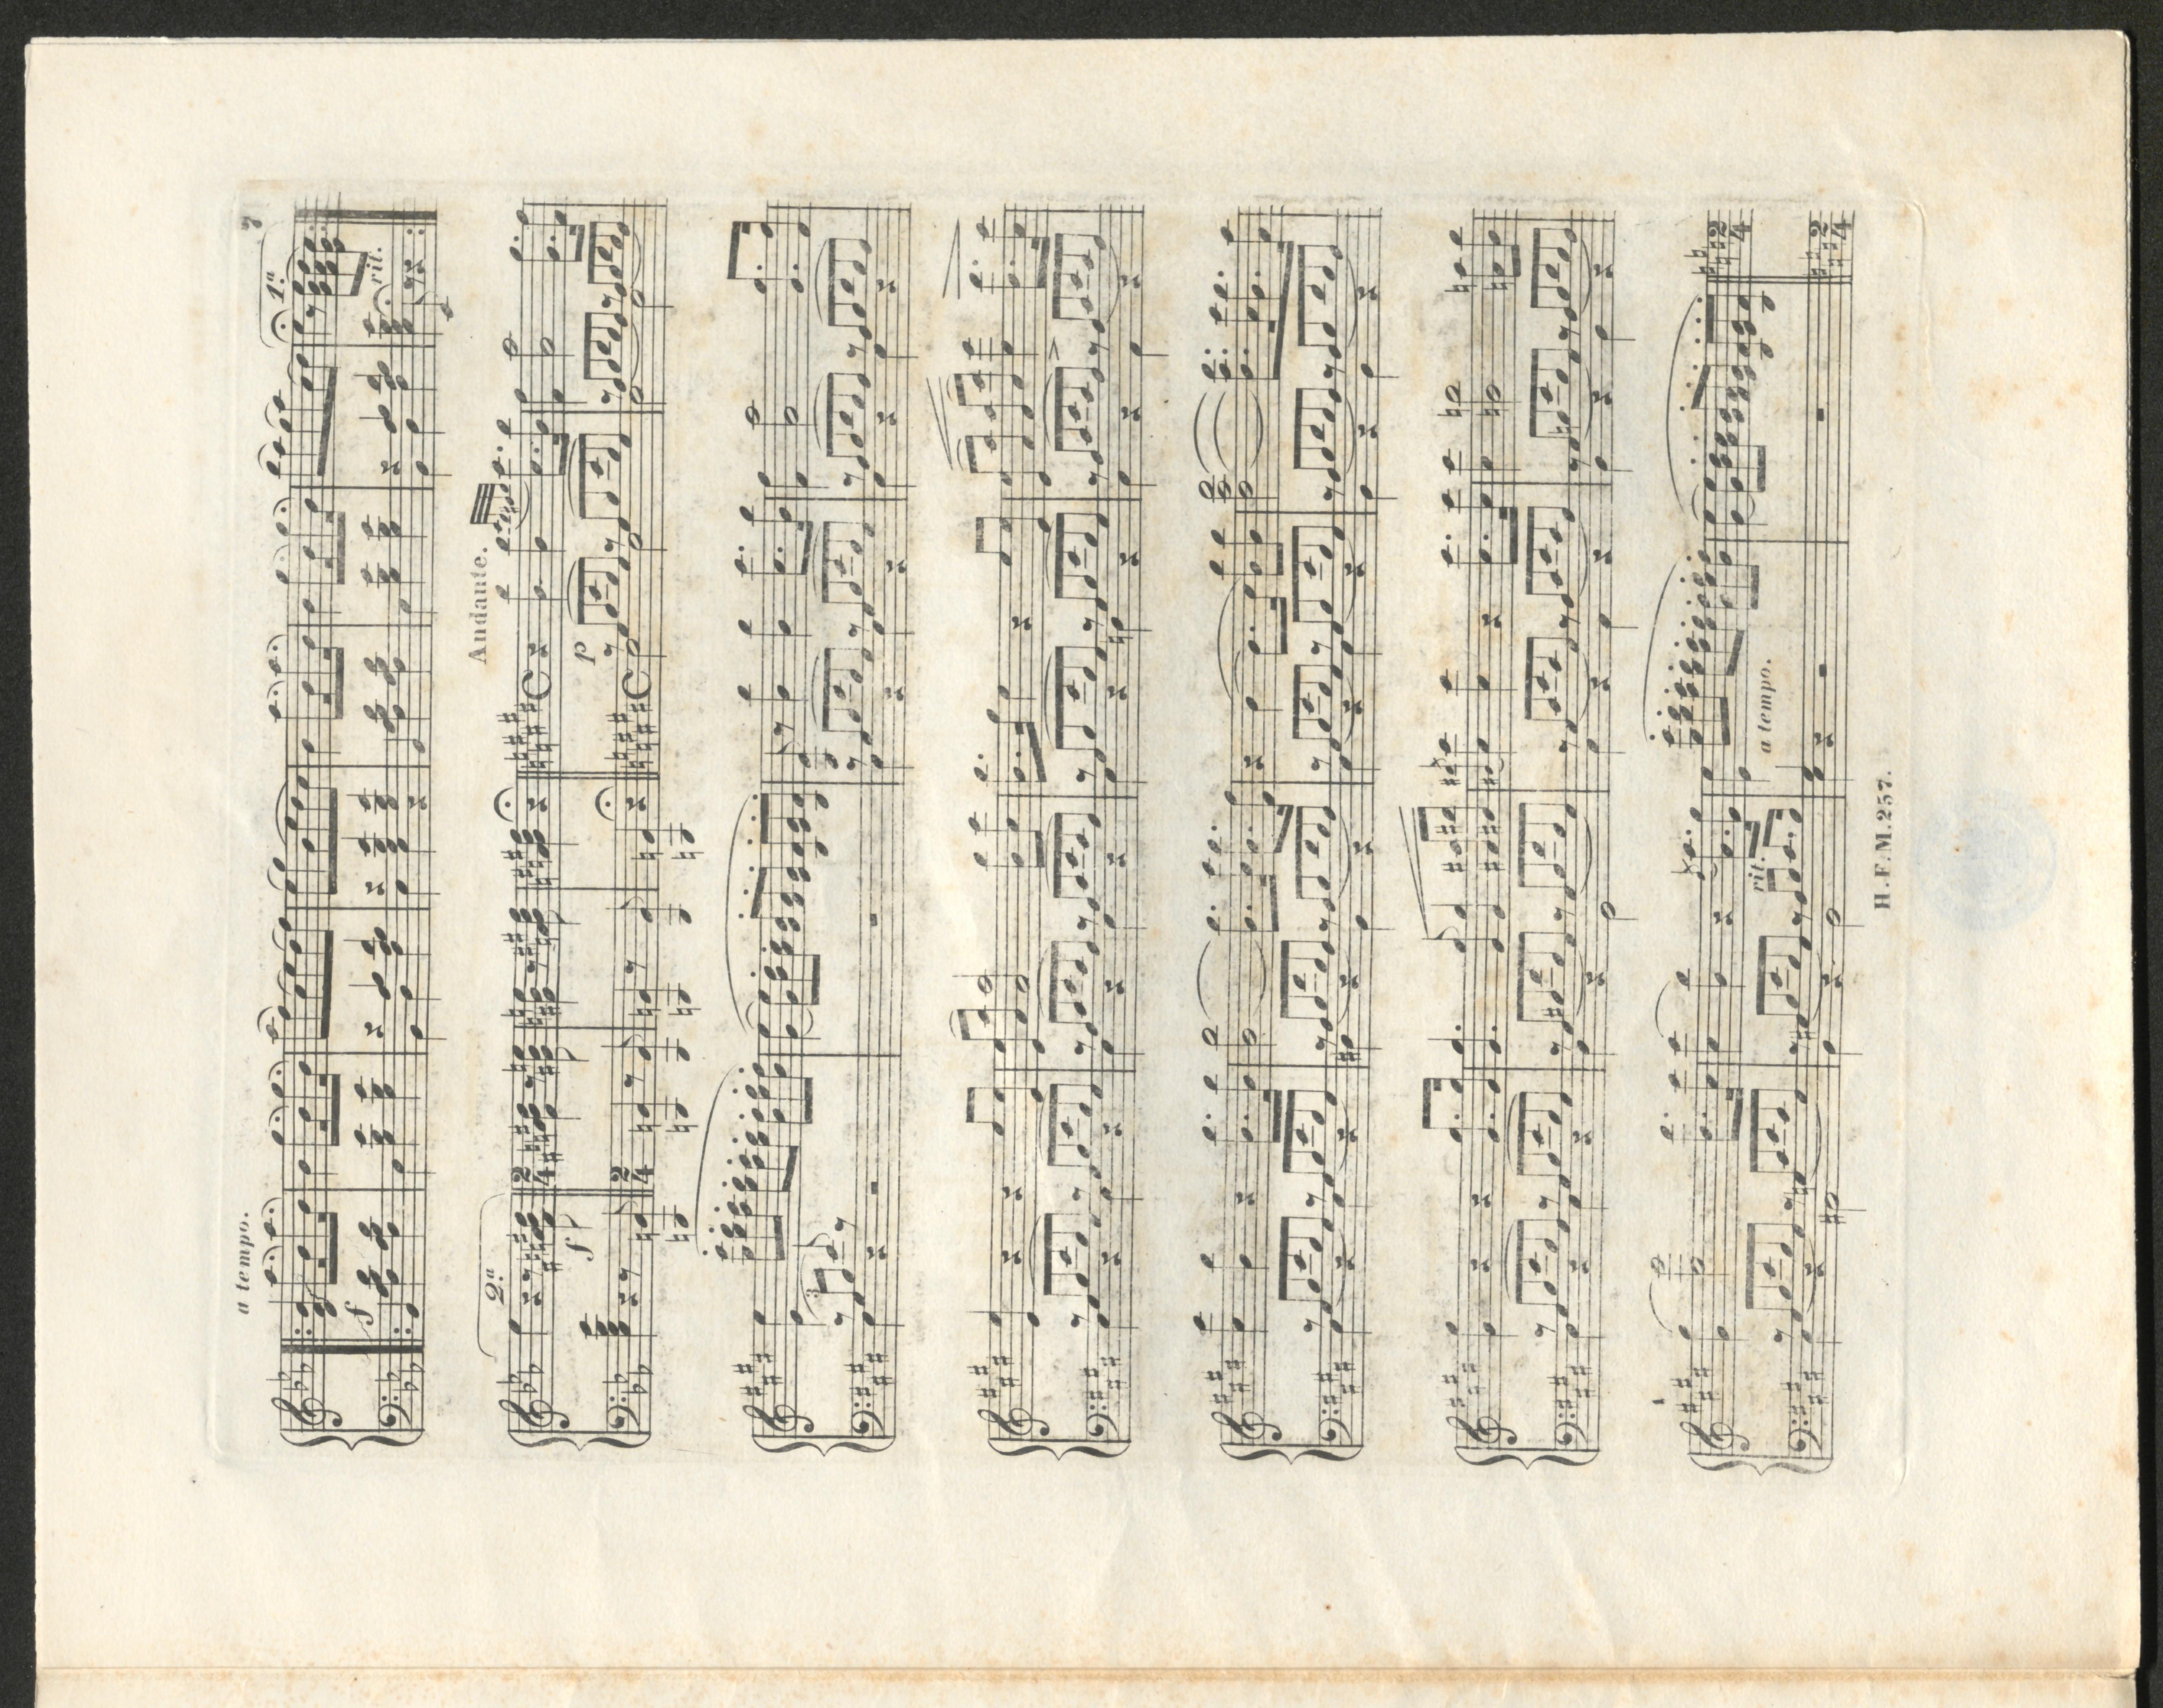 7
a tempo.
1.a
f
rit.
2.a
Andante.
f
p
3
rit.
a tempo.
H.F.M.257.